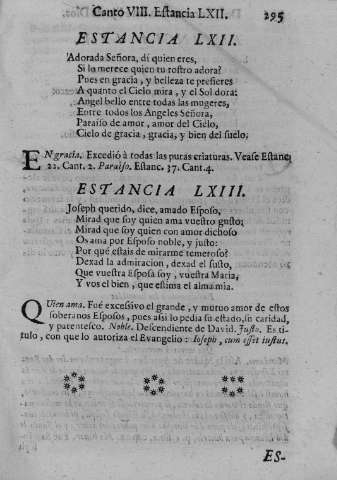 Canto VIII. Estancia LXII. 295
ESTANCIA LXII.
Adorada Señora, di quien eres,
Si lo merece quien tu rostro adora?
Pues en gracia, y belleza te prefieres
A quanto el Cielo mira, y el Sol dora:
Angel bello entre todas las mugeres,
Entre todos los Angeles Señora,
Paraiso de amor, amor del Cielo,
Cielo de gracia, gracia, y bien del suelo.
EN gracia. Excediò à todas las puras criaturas. Vease Estanc.
22. Cant. 2. Paraiso. Estanc. 37. Cant. 4.
ESTANCIA LXIII.
Joseph querido, dice, amado Esposo,
Mirad que soy quien ama vuestro gusto;
Mirad que soy quien con amor dichoso
Os ama por Esposo noble, y justo:
Por què estais de mirarme temeroso?
Dexad la admiracion, dexad el susto,
Que vuestra Esposa soy, vuestra Maria,
Y vos el bien, que estima el alma mia.
Quien ama. Fuè excessivo el grande, y mutuo amor de estos
soberanos Esposos, pues assi lo pedia su estado, su caridad,
y parentesco. Noble. Descendiente de David. Justo. Es ti-
tulo, con que lo autoriza el Evangelio: Ioseph, cum esset iustus.
ES-